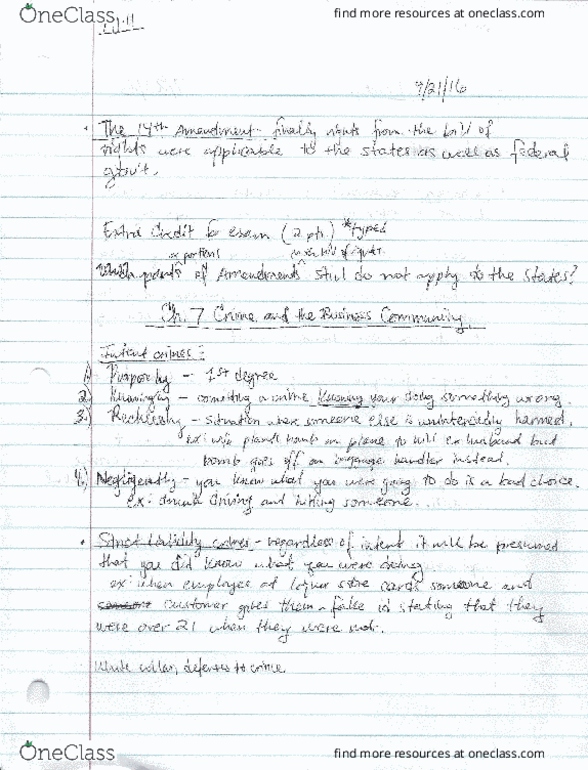 OneClass
find more resources at oneclass.com
9/21/16
The 14th Amendment - finally rights from the bill of
rights were applicable to the states as well as federal
gov't.
Extra Credit for exam (2 pts) *typed
or portions
Which parts of Amendments still do not apply to the states?
Ch. 7 Crime and the Business Community
Intent crimes:
1.) Purposely - 1st degree
2.) Knowingly - a crime knowing your doing something wrong.
3.) Recklessly - situation when someone else is unintentionally harmed.
ex: wife plants bomb on plane to kill ex husband but
bomb goes off on luggage handler instead.
4.) Negligently - you know what you were going to do is a bad choice.
ex: drunk driving and hitting someone...
• Strict liability crimes - regardless of intent it will be presumed
that you did know what you were doing
ex: when employee at liquor store cards someone and
customer gives them a false id stating that they
were over 21 when they were not.
White collar, defenses to crime.
OneClass
find more resources at oneclass.com